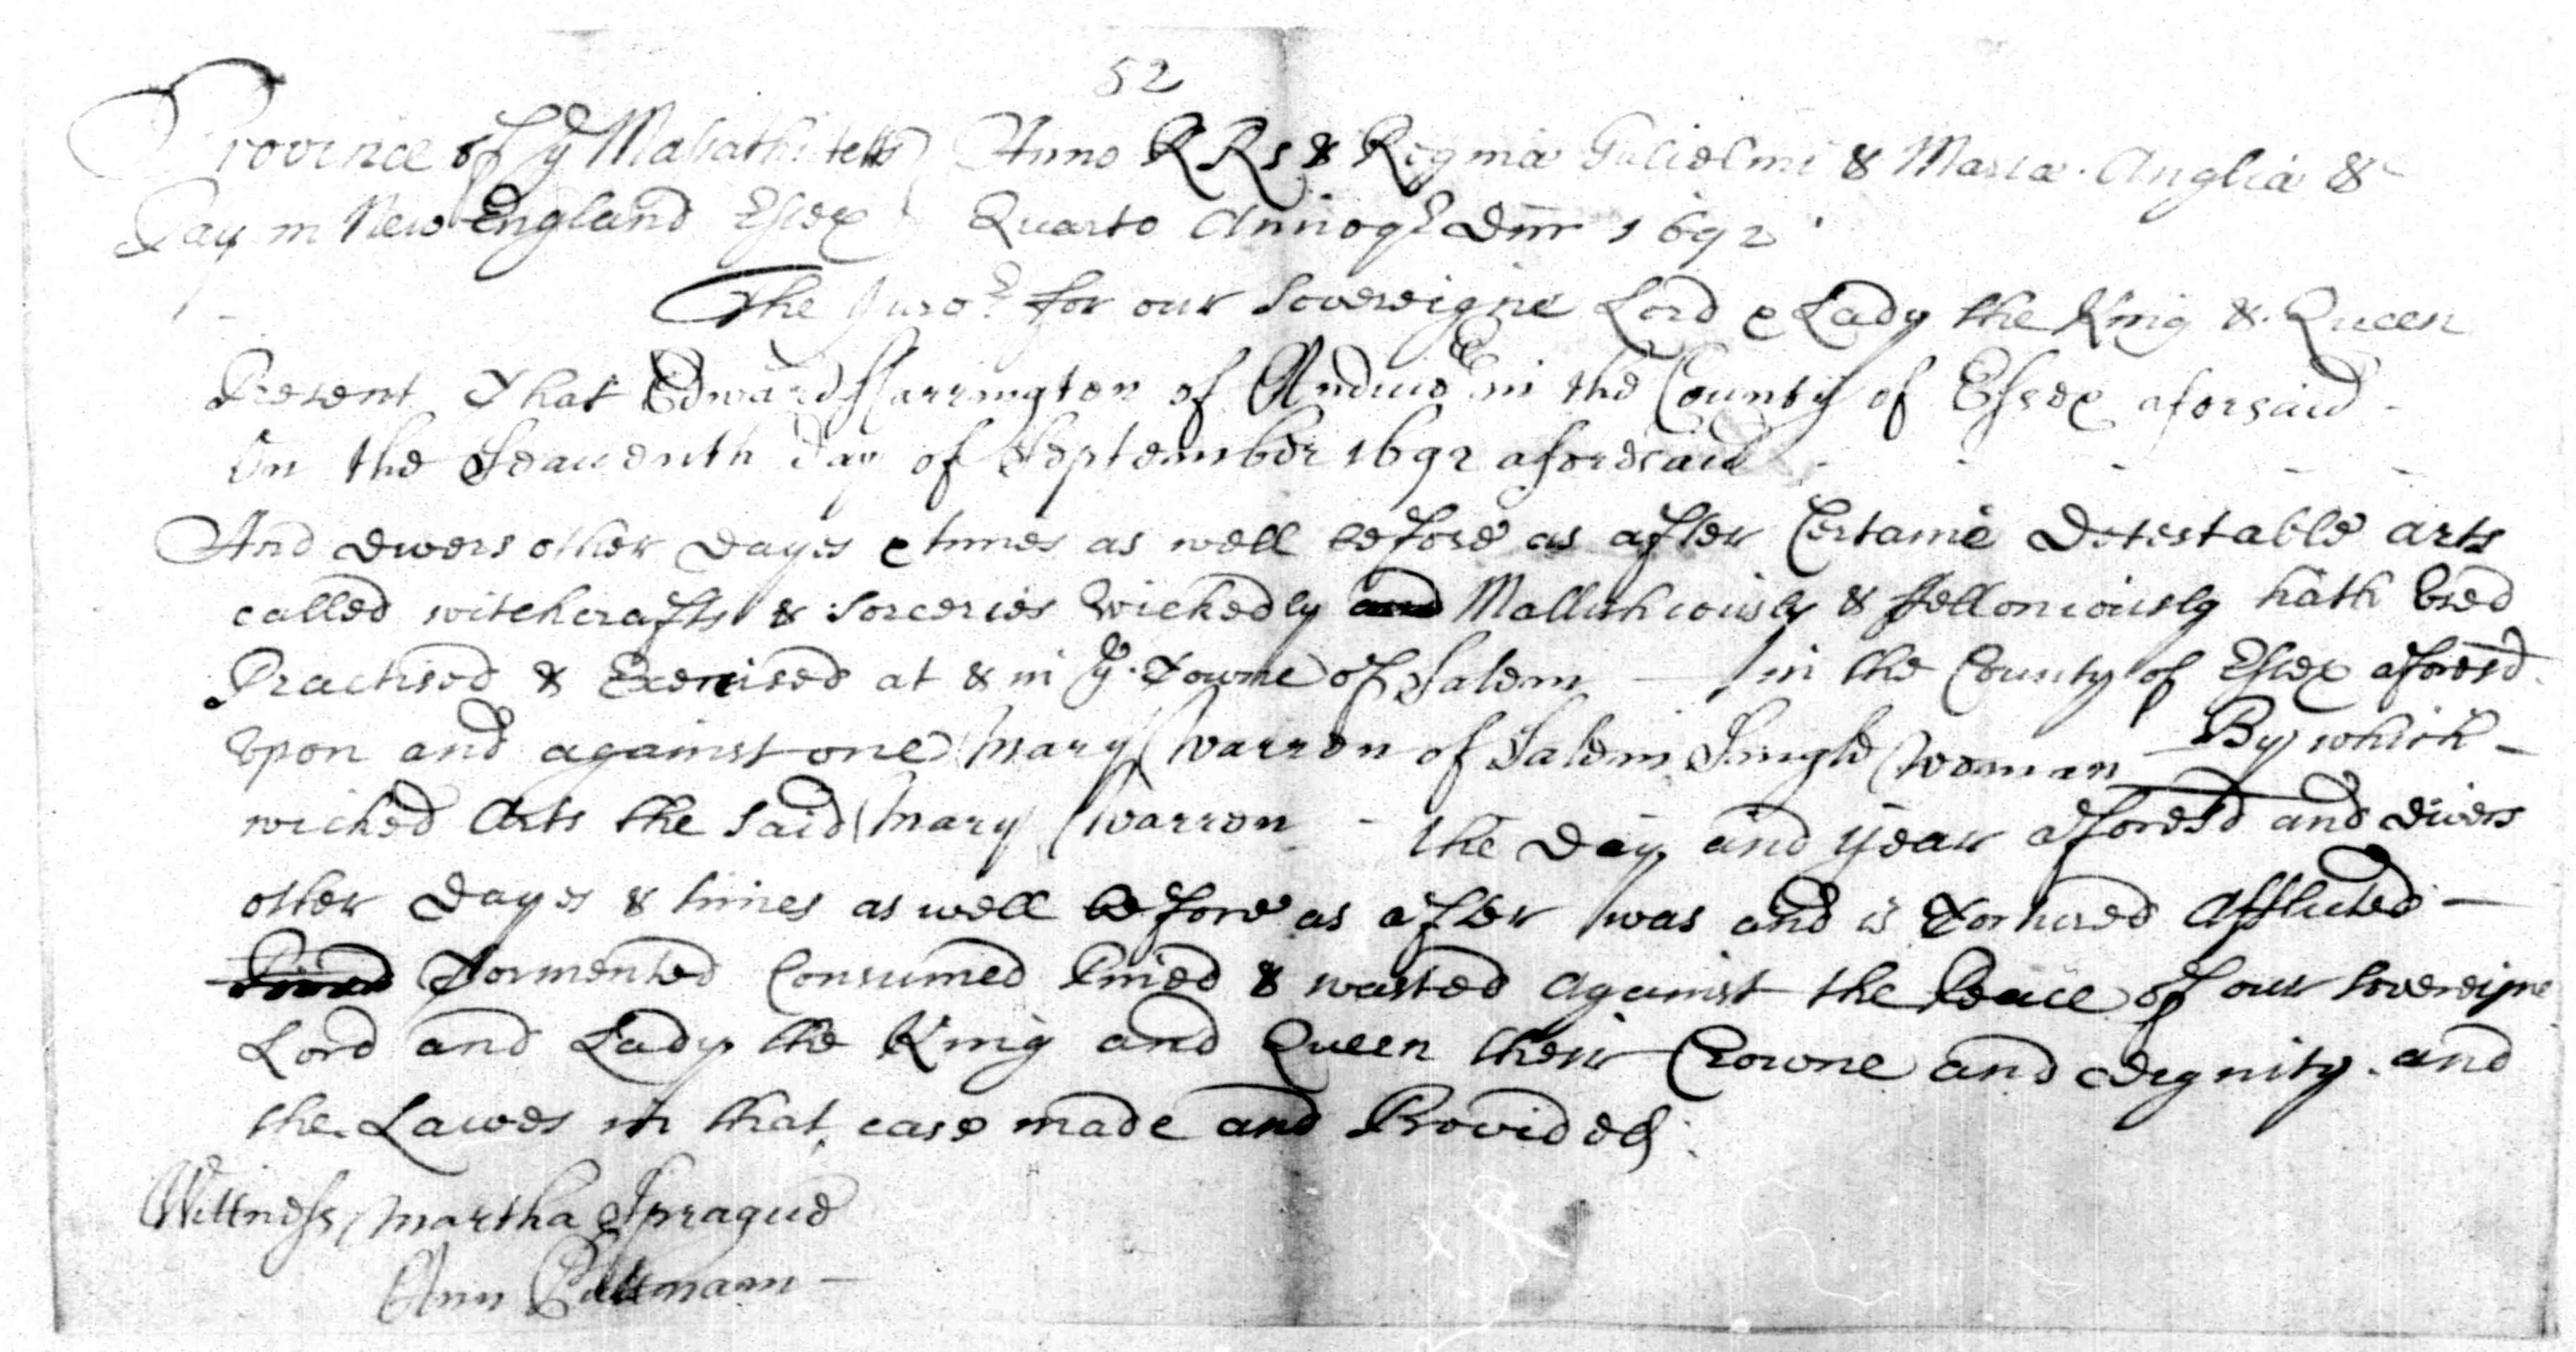 52
Province of ye Massathusetts Anno RRs & Reginæ Gulielmi & Mariæ Angliæ &c
Bay in New England Essex Quarto Annoqe Dom 1692
The Juror for our Sovereigne Lord & Lady the King & Queen
Present That Edward Farrington of Andiuor in the County of Essex aforsaid
On the Seauenth day of September 1692 aforesaid
And divers other dayes & times as well before as after Certaine Detestable arts
called witchcrafts & Sorceries Wickedly and Mallishiously & felloniously hath vsed
Practised & Exercised at & in ye Towne of Salem in the County of Essex aforesd
Vpon and against one Mary Warren of Salem Single Woman By which
wicked Arts the Said Mary Warren the Day and year aforesd and divers
other Dayes & times as well before as after was and is Tortured Afflicted
Tormented Consumed Pined & wasted against the Peace of our Sovereigne
Lord and Lady the King and Queen their Crowne and dignity and
the Lawes in that case made and Provided
Wittness Martha Sprague
Ann Puttmam